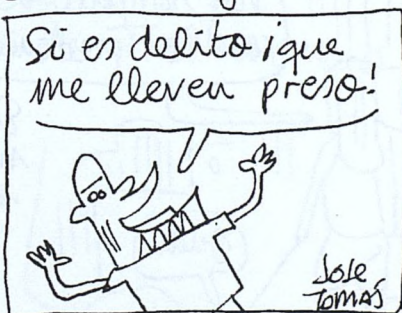 Si es delito ¡que
me lleven preso!
JOSE
TOMÁS